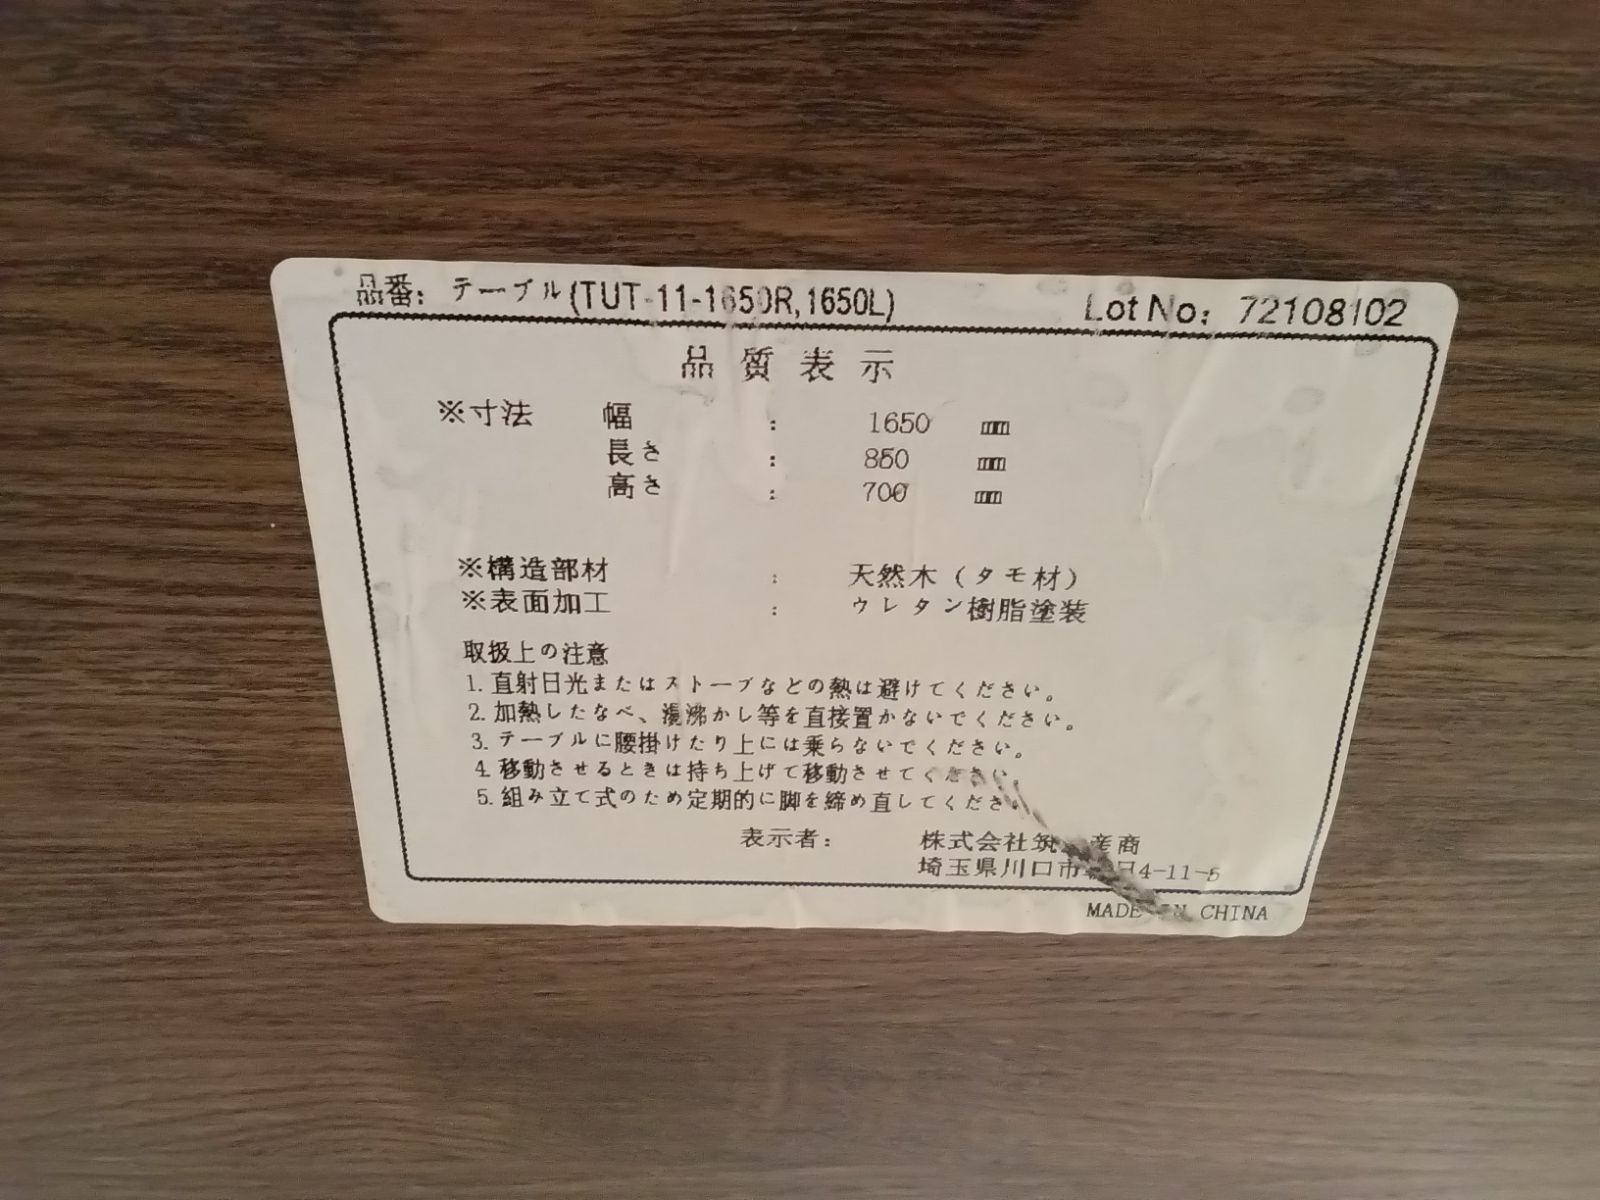 品番: テーブル(TUT-11-1650R,1650L) Lot No: 72108102
品質表示
※寸法 幅 : 1650 mm
長さ : 850 mm
高さ : 700 mm
※構造部材 : 天然木(タモ材)
※表面加工 : ウレタン樹脂塗装
取扱上の注意
1. 直射日光またはストーブなどの熱は避けてください。
2. 加熱したなべ、湯沸かし等を直接置かないでください。
3. テーブルに腰掛けたり上には乗らないでください。
4. 移動させるときは持ち上げて移動させてください。
5. 組み立て式のため定期的に脚を締め直してくださ
表示者: 株式会社筑 産商
埼玉県川口市 4-11-5
MADE IN CHINA